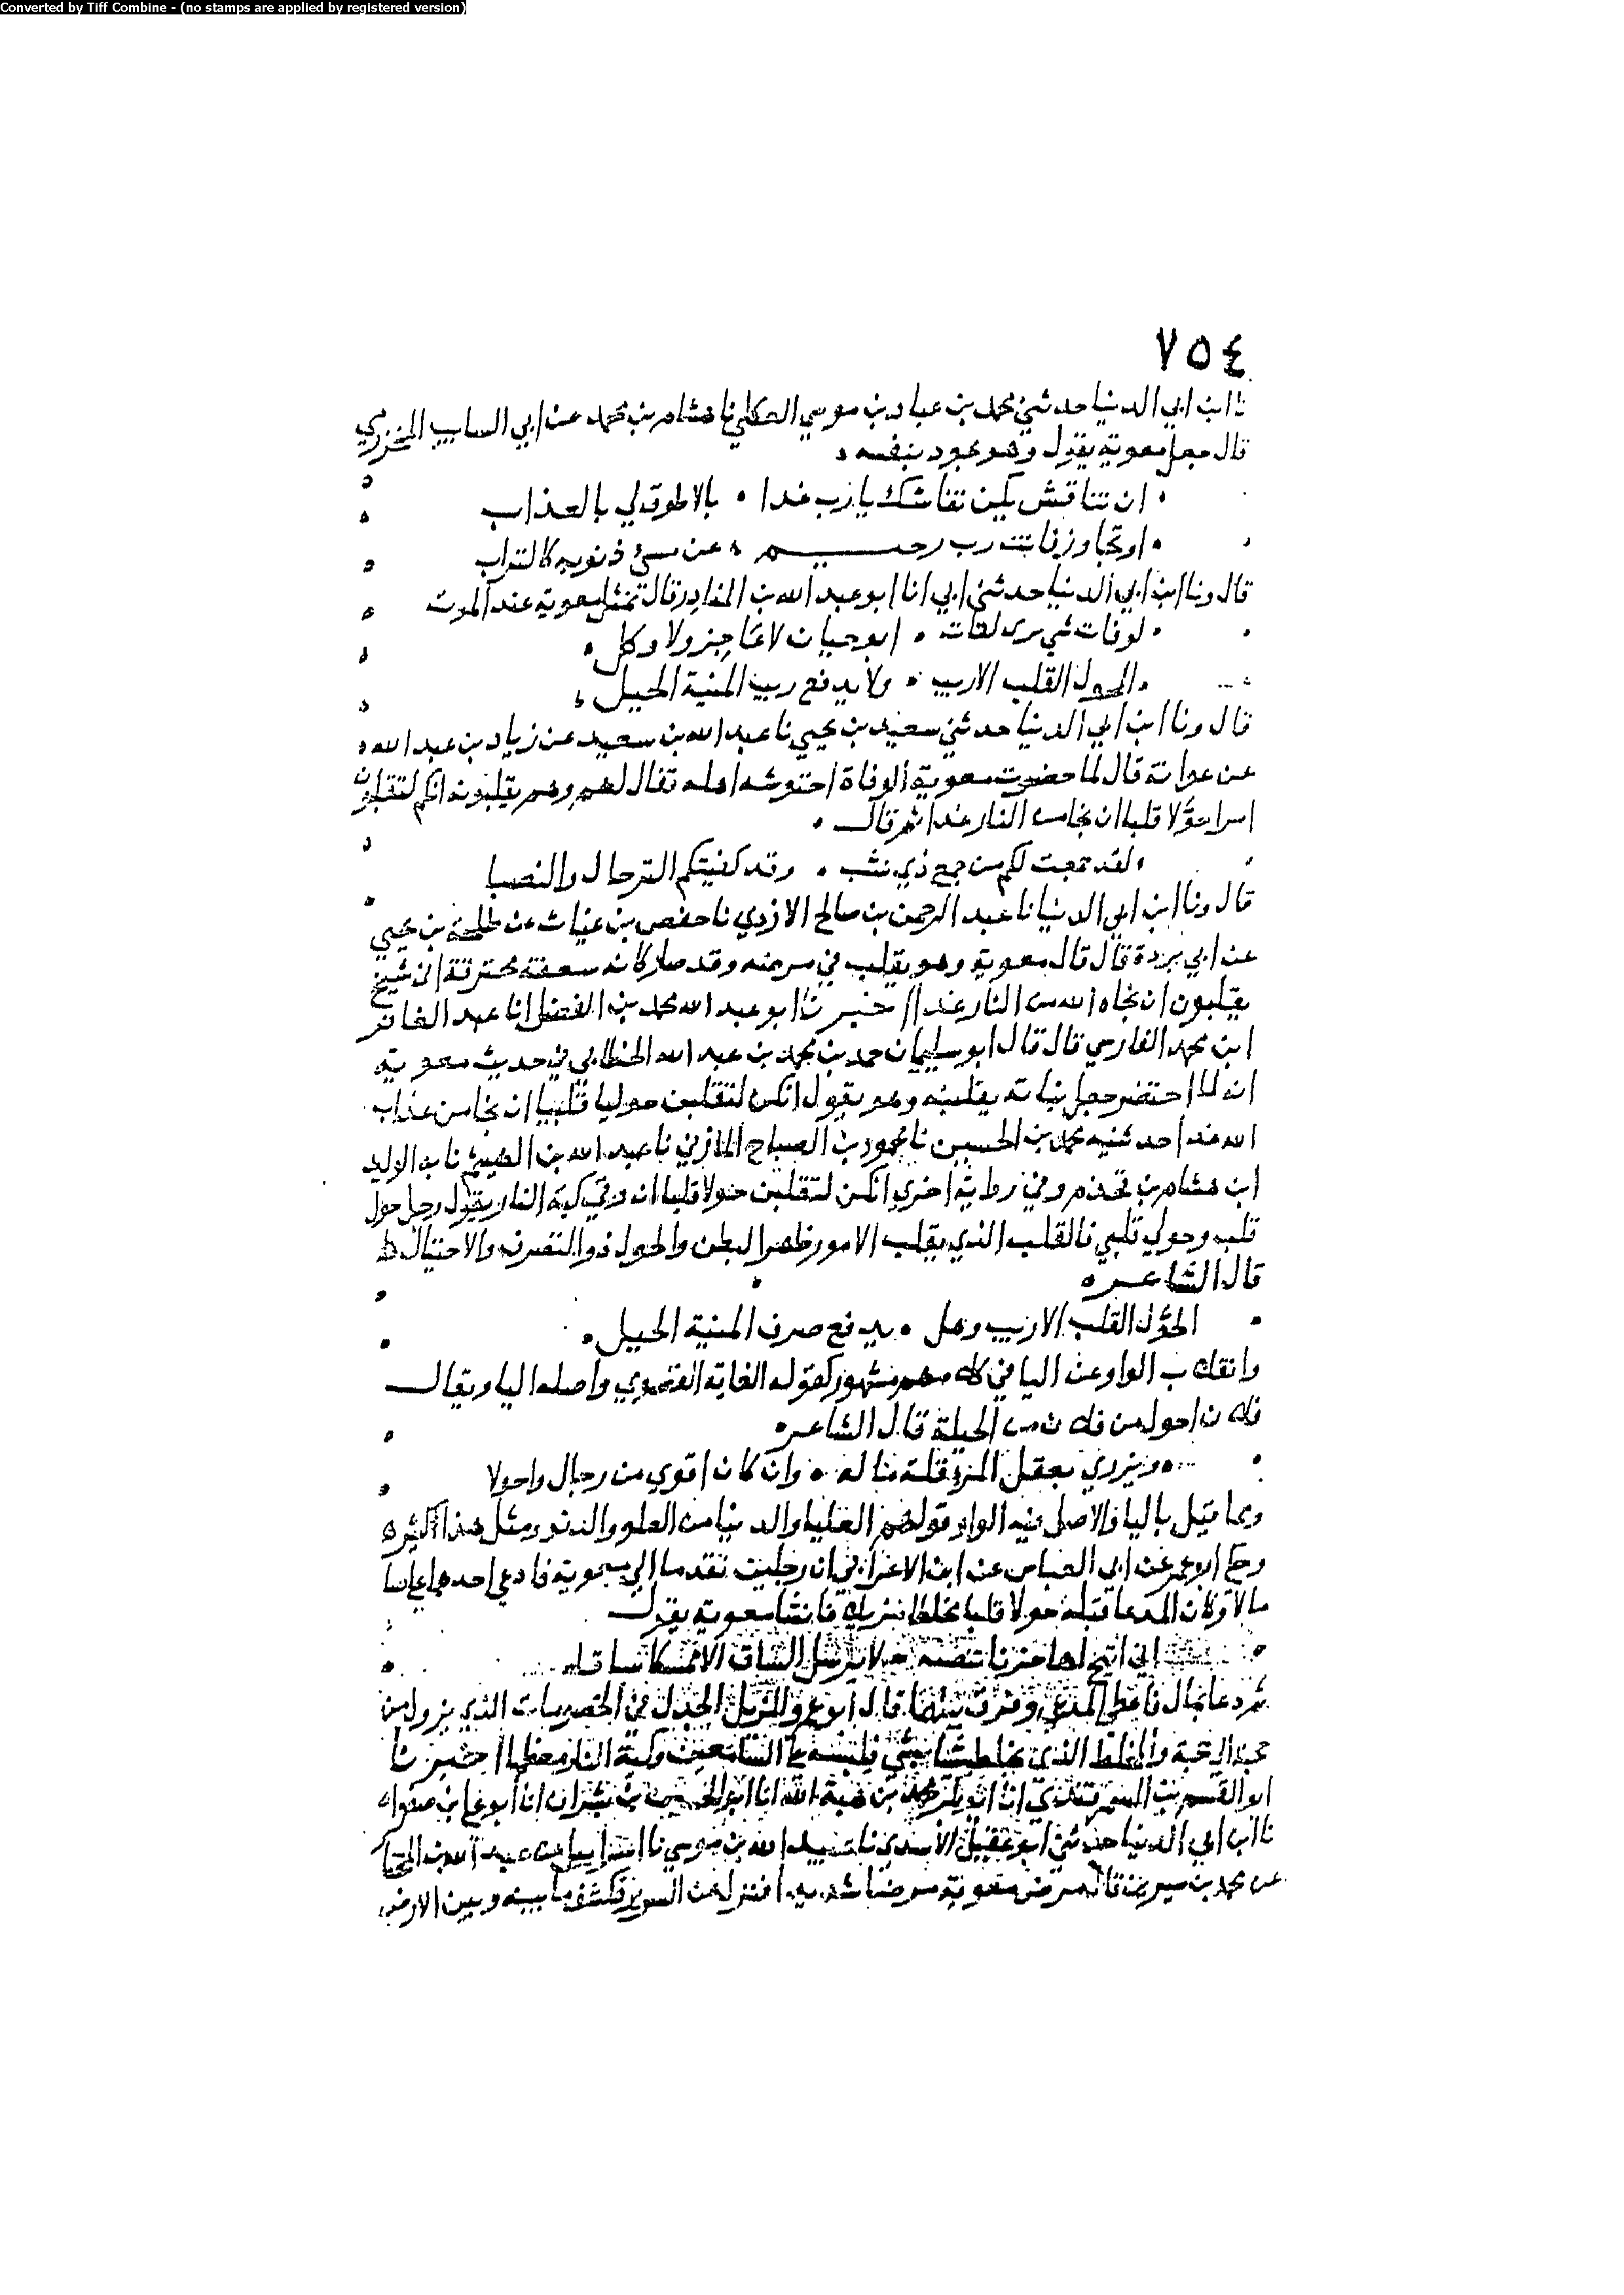 Converted by Tiff Combine - (no stamps are applied by registered version)
٧٥٤
نا ابن ابي الدنيا حدثني محمد بن عباد بن موسي العكلي نا هشام بن محمد عن ابي السايب المخزومي
قال جعل معوية يقول وهو يجود بنفسه
ان تناقش يكن نقاشك يا رب عذا بالا طوق لي بالعذاب
او تجاوز فانت رب رحيم عن مسئ ذنوبه كالتراب
قال ونا ابن ابي الدنيا حدثني ابي انا ابو عبد الله بن المنادر قال تمثل معوية عند الموت
لو فات شي يري لفات ابو حيان لا عاجز ولا وكل
الحول القلب الاريب ولا يدفع ريب المنية الحيل
قال ونا ابن ابي الدنيا حدثني سعيد بن يحيي نا عبد الله بن سعيد عن زياد بن عبد الله
عن عوانة قال لما حضرت معوية الوفاة احتوشه اهله فقال لهم وهم يقلبونه انكم لتقلبون
امرا حولا قلبا ان نجا من النار غدا ثم قال
لقد جمعت لكم من جمع ذي نشب وقد كفيتكم الترحال والنصبا
قال ونا ابن ابي الدنيا نا عبد الرحمن بن صالح الازدي نا حفص بن غياث عن طلحة بن يحيي
عن ابي بردة قال قال معوية وهو يقلب في مرضه وقد صار كانه سعفة محترقة اي شيخ
يقلبون ان نجاه الله من النار غدا اخبرنا ابو عبد الله محمد بن الفضل انا عبد الغافر
ابن محمد الفارسي قال قال ابو سليمان حمد بن محمد بن عبد الله الخطابي في حديث معوية
انه لما احتضر جعل بناته يقلبنه وهو يقول انكن لتقلبن حوليا قلبيا ان نجا من عذاب
الله غدا حدثنيه محمد بن الحسين نا محمود بن الصباح المازني نا عبد الله بن الهيثم نا به الوليد
ابن هشام بن قحذم وفي رواية اخري انكن لتقلبن حولا قلبا ان وقي كبة النار يقول رجل حول
قلب وحولي قلبي فالقلب الذي يقلب الامور ظهرا لبطن والحول ذو التصرف والاحتيال
قال الشاعر
الحول القلب الاريب وهل يدفع صرف المنية الحيل
وانقلاب الواو عن اليا في كلامهم مشهور كقوله الغاية القصوي واصله اليا ويقال
فلان احول من فلان من الحيلة قال الشاعر
ويزري بعقل المرء قلة ماله وان كان اقوي من رجال واحولا
ومما قيل باليا والاصل فيه الواو قولهم العليا والدنيا من العلو والدنو ومثل هذا كثير
وحكي ابو عمر عن ابي العباس عن ابن الاعرابي ان رجلين تقدما الي معوية فادعي احدهما علي صاحبه
مالا وكان المدعا قبله حولا قلبا مخلطا مزيلا فانشا معوية يقول
اني اتيح لها حربا تنضبه لا يرسل الساق الا ممسكا ساقا
ثم دعا بمال فاعطي المدعي وفرق بينهما قال ابو عمر والمزيل الجدل في الخصومات الذي يزول من
حجة الي حجة والمخلط الذي يخلط شيا بشي فيلبسه علي السامعين وكبة النار معظمها اخبرنا
ابو القسم بن السمرقندي انا ابو بكر محمد بن هبة الله انا ابو الحسين بن بشران انا ابو علي بن صفوان
نا ابن ابي الدنيا حدثني ابو عقيل الاسدي نا عبيد الله بن موسي نا اسرايل عن عبد الله بن المختار
عن محمد بن سيرين قال مرض معوية مرضا شديدا فنزل عن السرير فكشف ما بينه وبين الارض